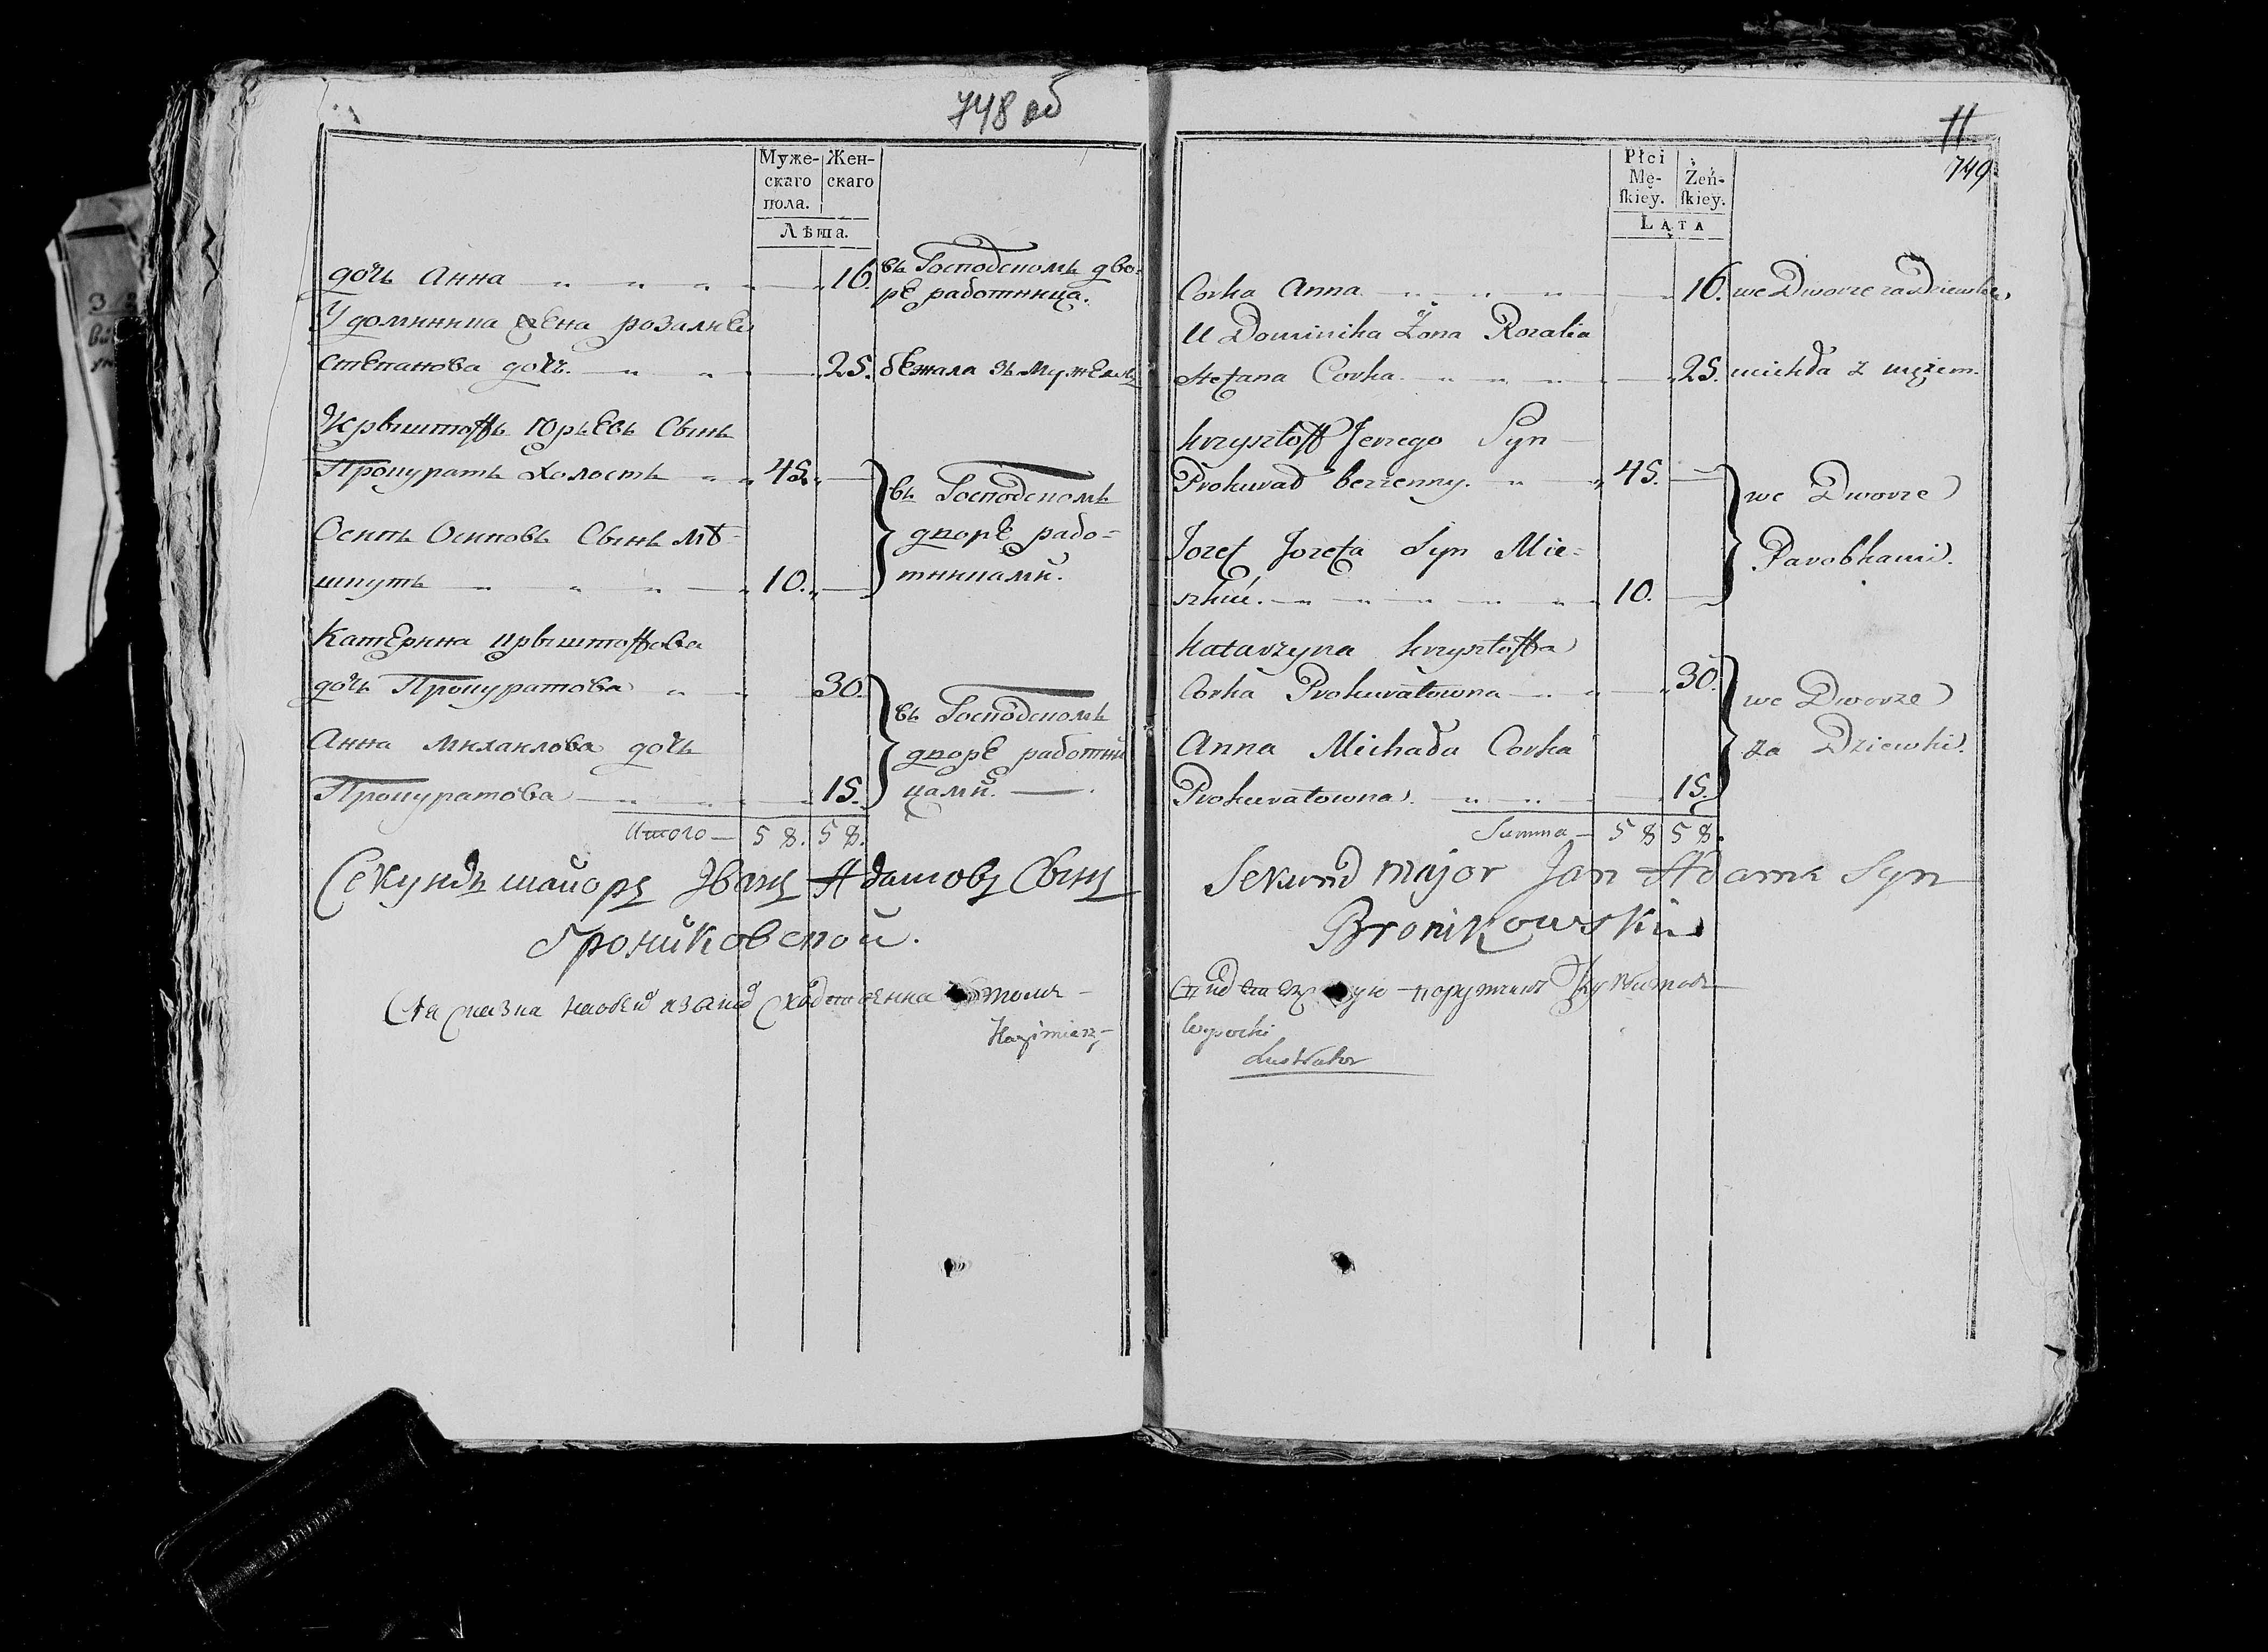 748 об
Муже-
скаго
пола.
Жен-
скаго
Лѣта.
дочь Анна 16. въ Господскомъ дво-
рѣ работница.
У доминика жена розалиея
степанова дочь. 25. бежала зъ мужемъ
Крыштоффъ юрьевъ Сынъ
Прокуратъ Холостъ 45.
въ Господскомъ
дворѣ рабо-
тниками.
Осипъ Осиповъ Сынъ Мѣ-
шкутъ 10.
Катерина крыштоффова
дочь Прокуратова 30.
въ Господскомъ
дворѣ работни
цами.
Анна Михаилова дочь
Прокуратова 15.
Итого 58. 58.
Секундъ маиоръ Иванъ Адамовъ Сынъ
Брониковской.
Kazimierz
11
749
Płci
Mę-
ſkiey.
Żeń-
ſkiey.
LATA
Corka Anna 16. we Dworze za Dziewkę
U Dominika Żona Rozalia
Stefana Corka 25. uciekła z mężem.
Krzysztoff Jerzego Syn
Prokurad bezzenny. 45.
we Dworze
Parobkami.
Jozef Jozefa Syn Mie-
szkuć. 10.
Katarzyna Krzysztoffa
Corka Prokuratowna 30.
we Dworze
za Dziewki.
Anna Michała Corka
Prokuratowna. 15.
Summa 58 58.
Sekund major Jan Adama Syn
Bronikowski
Wysocki
Lustrator